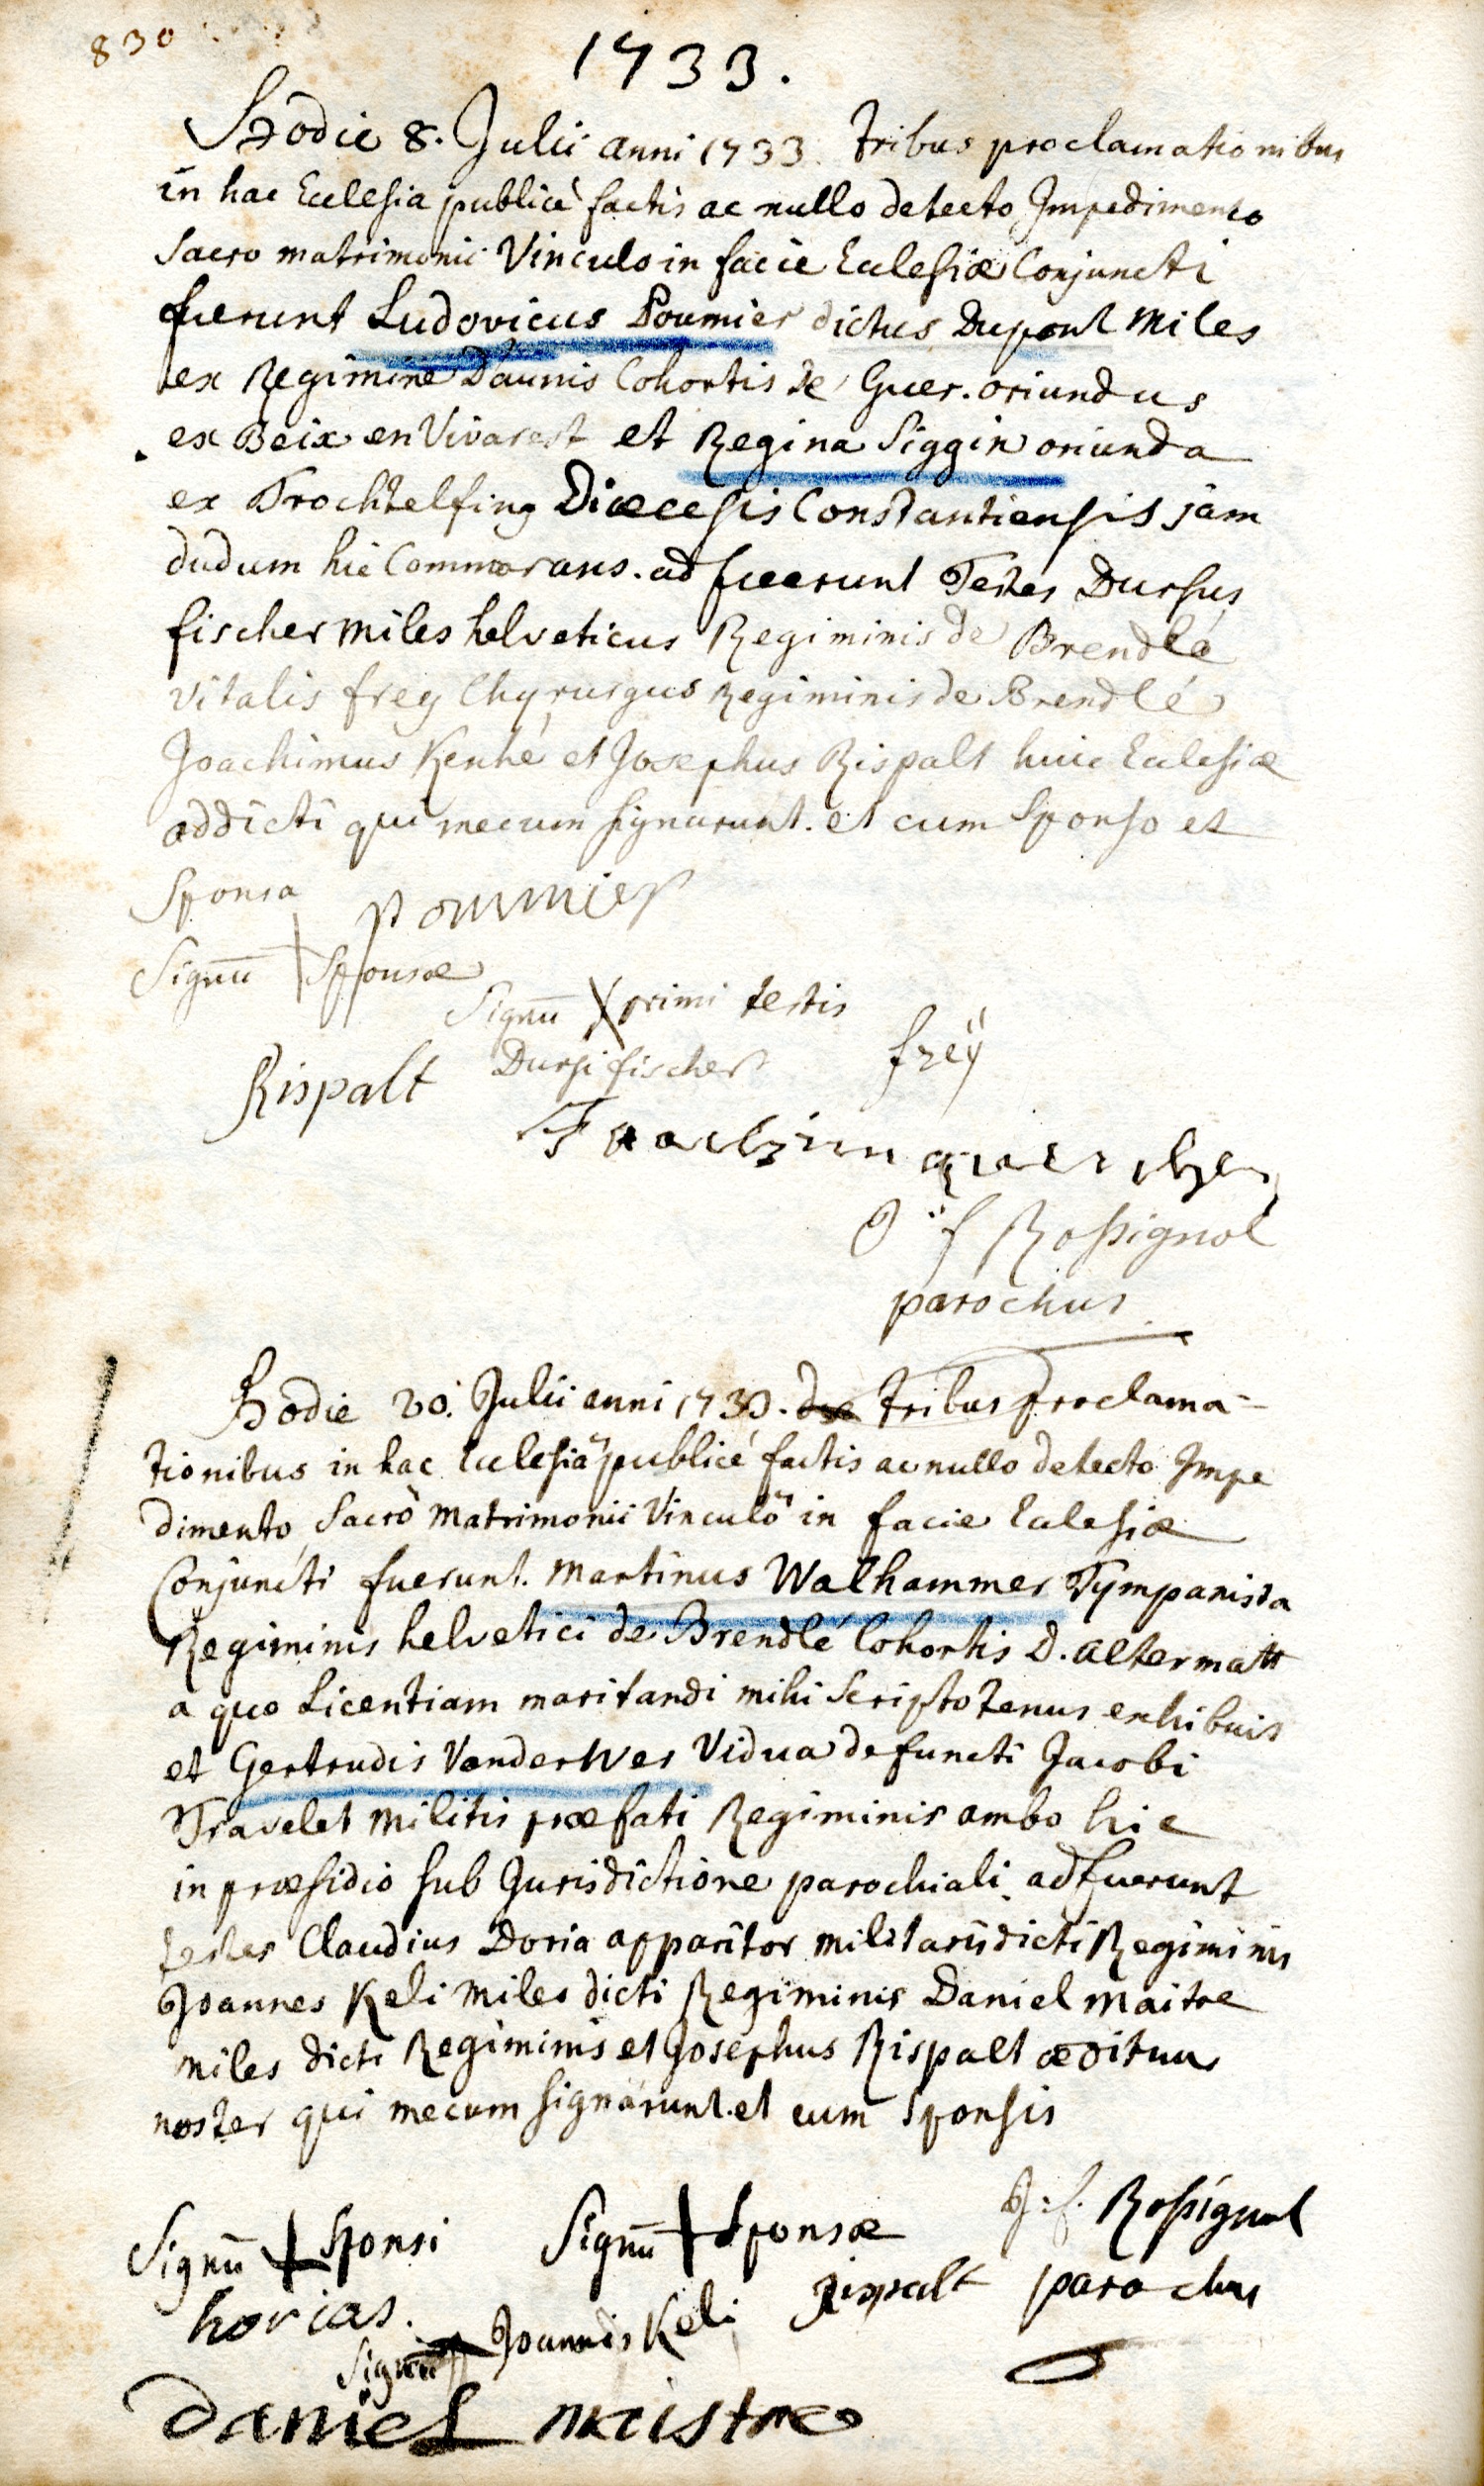 830
1733.
Hodie 8. Julii anni 1733. tribus proclamationibus
in hac Ecclesia publicè factis ac nullo detecto Impedimento
Sacro matrimonii Vinculo in facie Ecclesiæ Conjuncti
fuerunt Ludovicus Poumier dictus Dupont Miles
ex Regimine Daunis Cohortis de Guer. oriundus
ex Beix en Vivarest et Regina Siggin oriunda
ex Trochtelfing Diœcesis Constantiensis jam
dudum hic Commorans. adfuerunt Testes Dursus
fischer miles helveticus Regiminis de Brendlé
Vitalis frey Chyrurgus Regiminis de Brendlé
Joachimus Kenhé et Josephus Rispalt huic Ecclesiæ
addicti qui mecum signarunt. et cum Sponso et
Sponsa pommier
Signū Sponsæ
Signū primi testis
Dursi fischer frey
Rispalt
Joachim
J: f Rossignol
parochus
Hodie 20. Julii anni 1733. tribus proclama-
tionibus in hac Ecclesiâ publicé factis ac nullo detecto Impe
dimento, Sacrô Matrimonii Vinculô in facie Ecclesiæ
Conjuncti fuerunt. Martinus Walhammer Tympanista
Regiminis helvetici de Brendlé Cohortis D. altermatt
a quo Licentiam maritandi mihi Scripto tenus exhibuit
et Gertrudis Vanderwer Vidua defuncti Jacobi
Travelet Militis præfati Regiminis ambo hic
in præsidio sub Jurisdictione parochiali. adfuerunt
testes Claudius Doria apparitor militaris dicti Regiminis
Joannes Keli Miles dicti Regiminis Daniel Maitre
Miles dicti Regiminis et Josephus Rispalt ædituus
noster qui mecum signârunt. et cum Sponsis
Signū Sponsi Signū Sponsæ J: f. Rossignol
horias. Rispalt parochus
Signū Joannis Keli
Daniel maistre